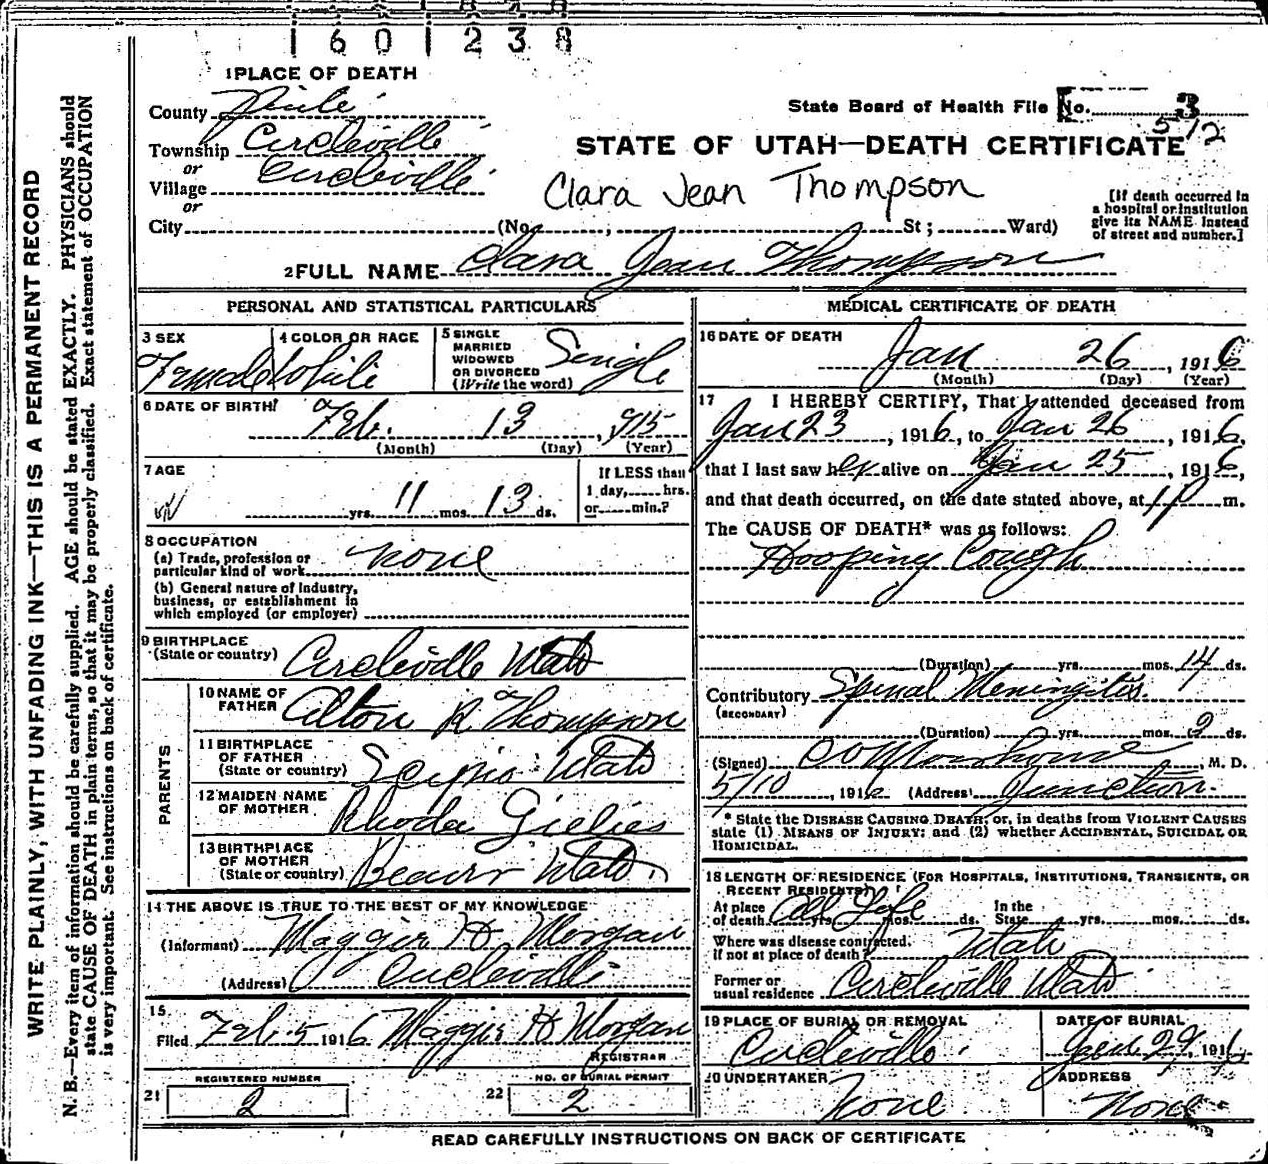 1601238
1 PLACE OF DEATH
County Piute
State Board of Health File No. 3
512
Township Circleville
or
Village Circleville
or
STATE OF UTAH—DEATH CERTIFICATE
Clara Jean Thompson
[If death occurred in
a hospital or institution
give its NAME instead
of street and number.]
City (No. ; St ; Ward)
2 FULL NAME Clara Jean Thompson
PERSONAL AND STATISTICAL PARTICULARS
3 SEX Female
4 COLOR OR RACE White
5 SINGLE
MARRIED
WIDOWED
OR DIVORCED
(Write the word) Single
6 DATE OF BIRTH
Feb. 13, 915
(Month) (Day) (Year)
7 AGE
yrs. 11 mos. 13 ds.
If LESS than
1 day, hrs.
or min.?
8 OCCUPATION
(a) Trade, profession or
particular kind of work none
(b) General nature of Industry,
business, or establishment in
which employed (or employer)
9 BIRTHPLACE
(State or country) Circleville Utah
PARENTS
10 NAME OF
FATHER Alton R Thompson
11 BIRTHPLACE
OF FATHER
(State or country) Scipio Utah
12 MAIDEN NAME
OF MOTHER Rhoda Gielies
13 BIRTHPLACE
OF MOTHER
(State or country) Beaver Utah
14 THE ABOVE IS TRUE TO THE BEST OF MY KNOWLEDGE
(Informant) Maggie H Morgan
(Address) Circleville
15
Filed Feb. 5 1916 Maggie H Morgan
REGISTRAR
21 REGISTERED NUMBER
2
22 NO. OF BURIAL PERMIT
2
MEDICAL CERTIFICATE OF DEATH
16 DATE OF DEATH
Jan 26, 1916
(Month) (Day) (Year)
17 I HEREBY CERTIFY, That I attended deceased from
Jan 23, 1916, to Jan 26, 1916,
that I last saw her alive on Jan 25, 1916,
and that death occurred, on the date stated above, at 1 P m.
The CAUSE OF DEATH* was as follows:
Hooping Cough
(Duration) yrs. mos. 14 ds.
Contributory Spinal Meningitis
(SECONDARY)
(Duration) yrs. mos. 2 ds.
(Signed) , M. D.
5/10, 1916 (Address) Junction.
* State the DISEASE CAUSING DEATH; or, in deaths from VIOLENT CAUSES
state (1) MEANS OF INJURY; and (2) whether ACCIDENTAL, SUICIDAL OR
HOMICIDAL.
18 LENGTH OF RESIDENCE (FOR HOSPITALS, INSTITUTIONS, TRANSIENTS, OR
RECENT RESIDENTS)
At place
of death All Life yrs. mos. ds. In the
State yrs. mos. ds.
Where was disease contracted,
if not at place of death? Utah
Former or
usual residence Circleville Utah
19 PLACE OF BURIAL OR REMOVAL
Circleville
DATE OF BURIAL
Jan. 29, 1916
20 UNDERTAKER
None
ADDRESS
None
READ CAREFULLY INSTRUCTIONS ON BACK OF CERTIFICATE
WRITE PLAINLY, WITH UNFADING INK—THIS IS A PERMANENT RECORD
N. B.—Every item of information should be carefully supplied. AGE should be stated EXACTLY. PHYSICIANS should
state CAUSE OF DEATH in plain terms, so that it may be properly classified. Exact statement of OCCUPATION
is very important. See instructions on back of certificate.